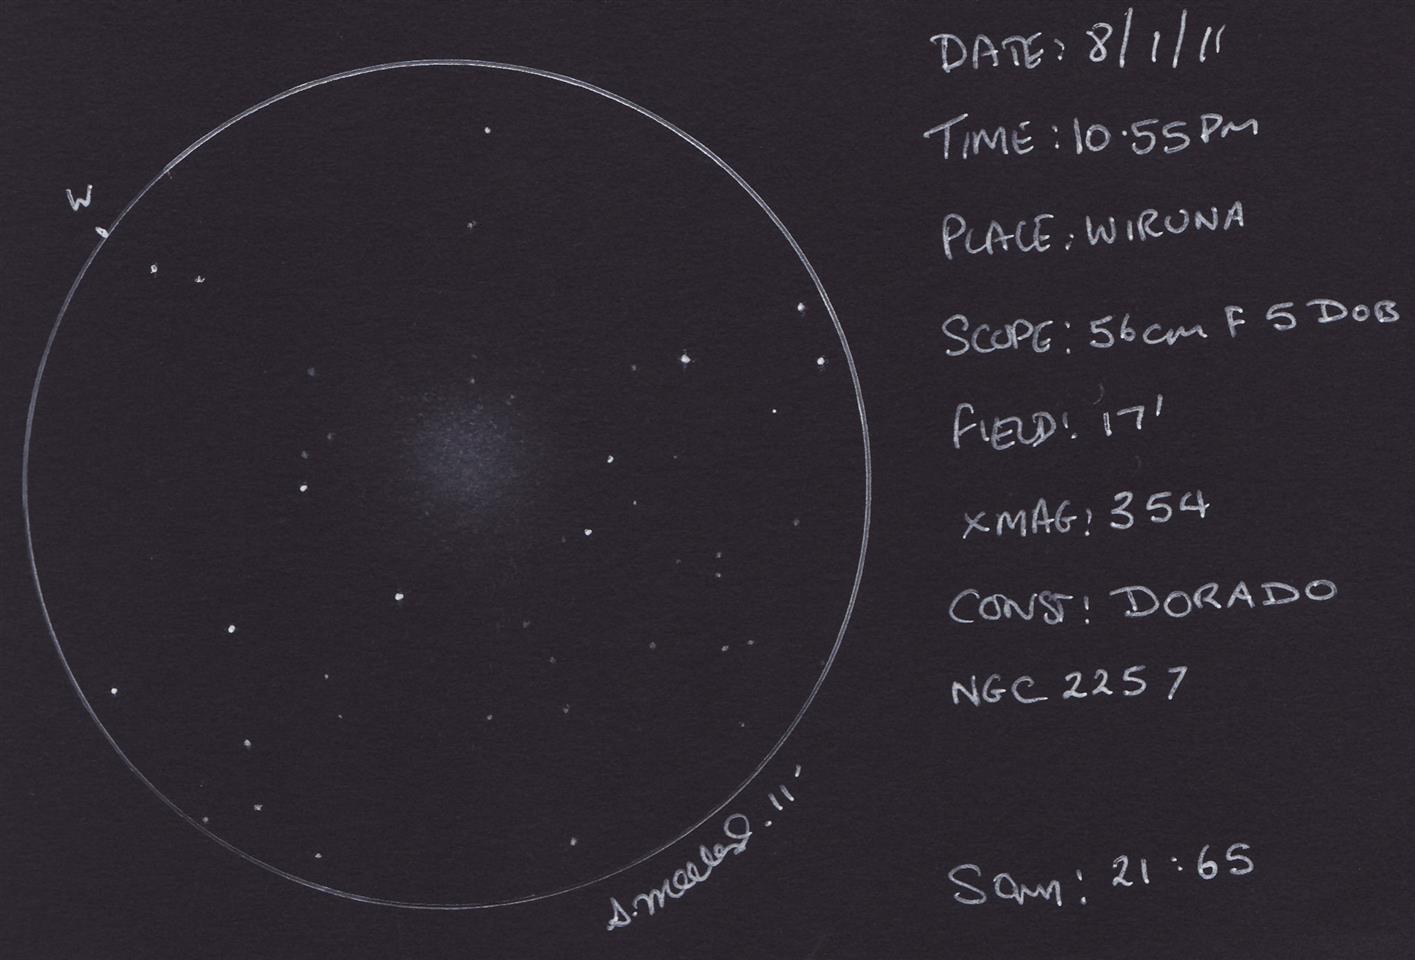 DATE: 8/1/11
TIME: 10.55PM
W
PLACE: WIRUNA
SCOPE: 56cm F 5 DOB
FIELD: 17'
XMAG: 354
CONST: DORADO
NGC 2257
.11'
SQM: 21:65